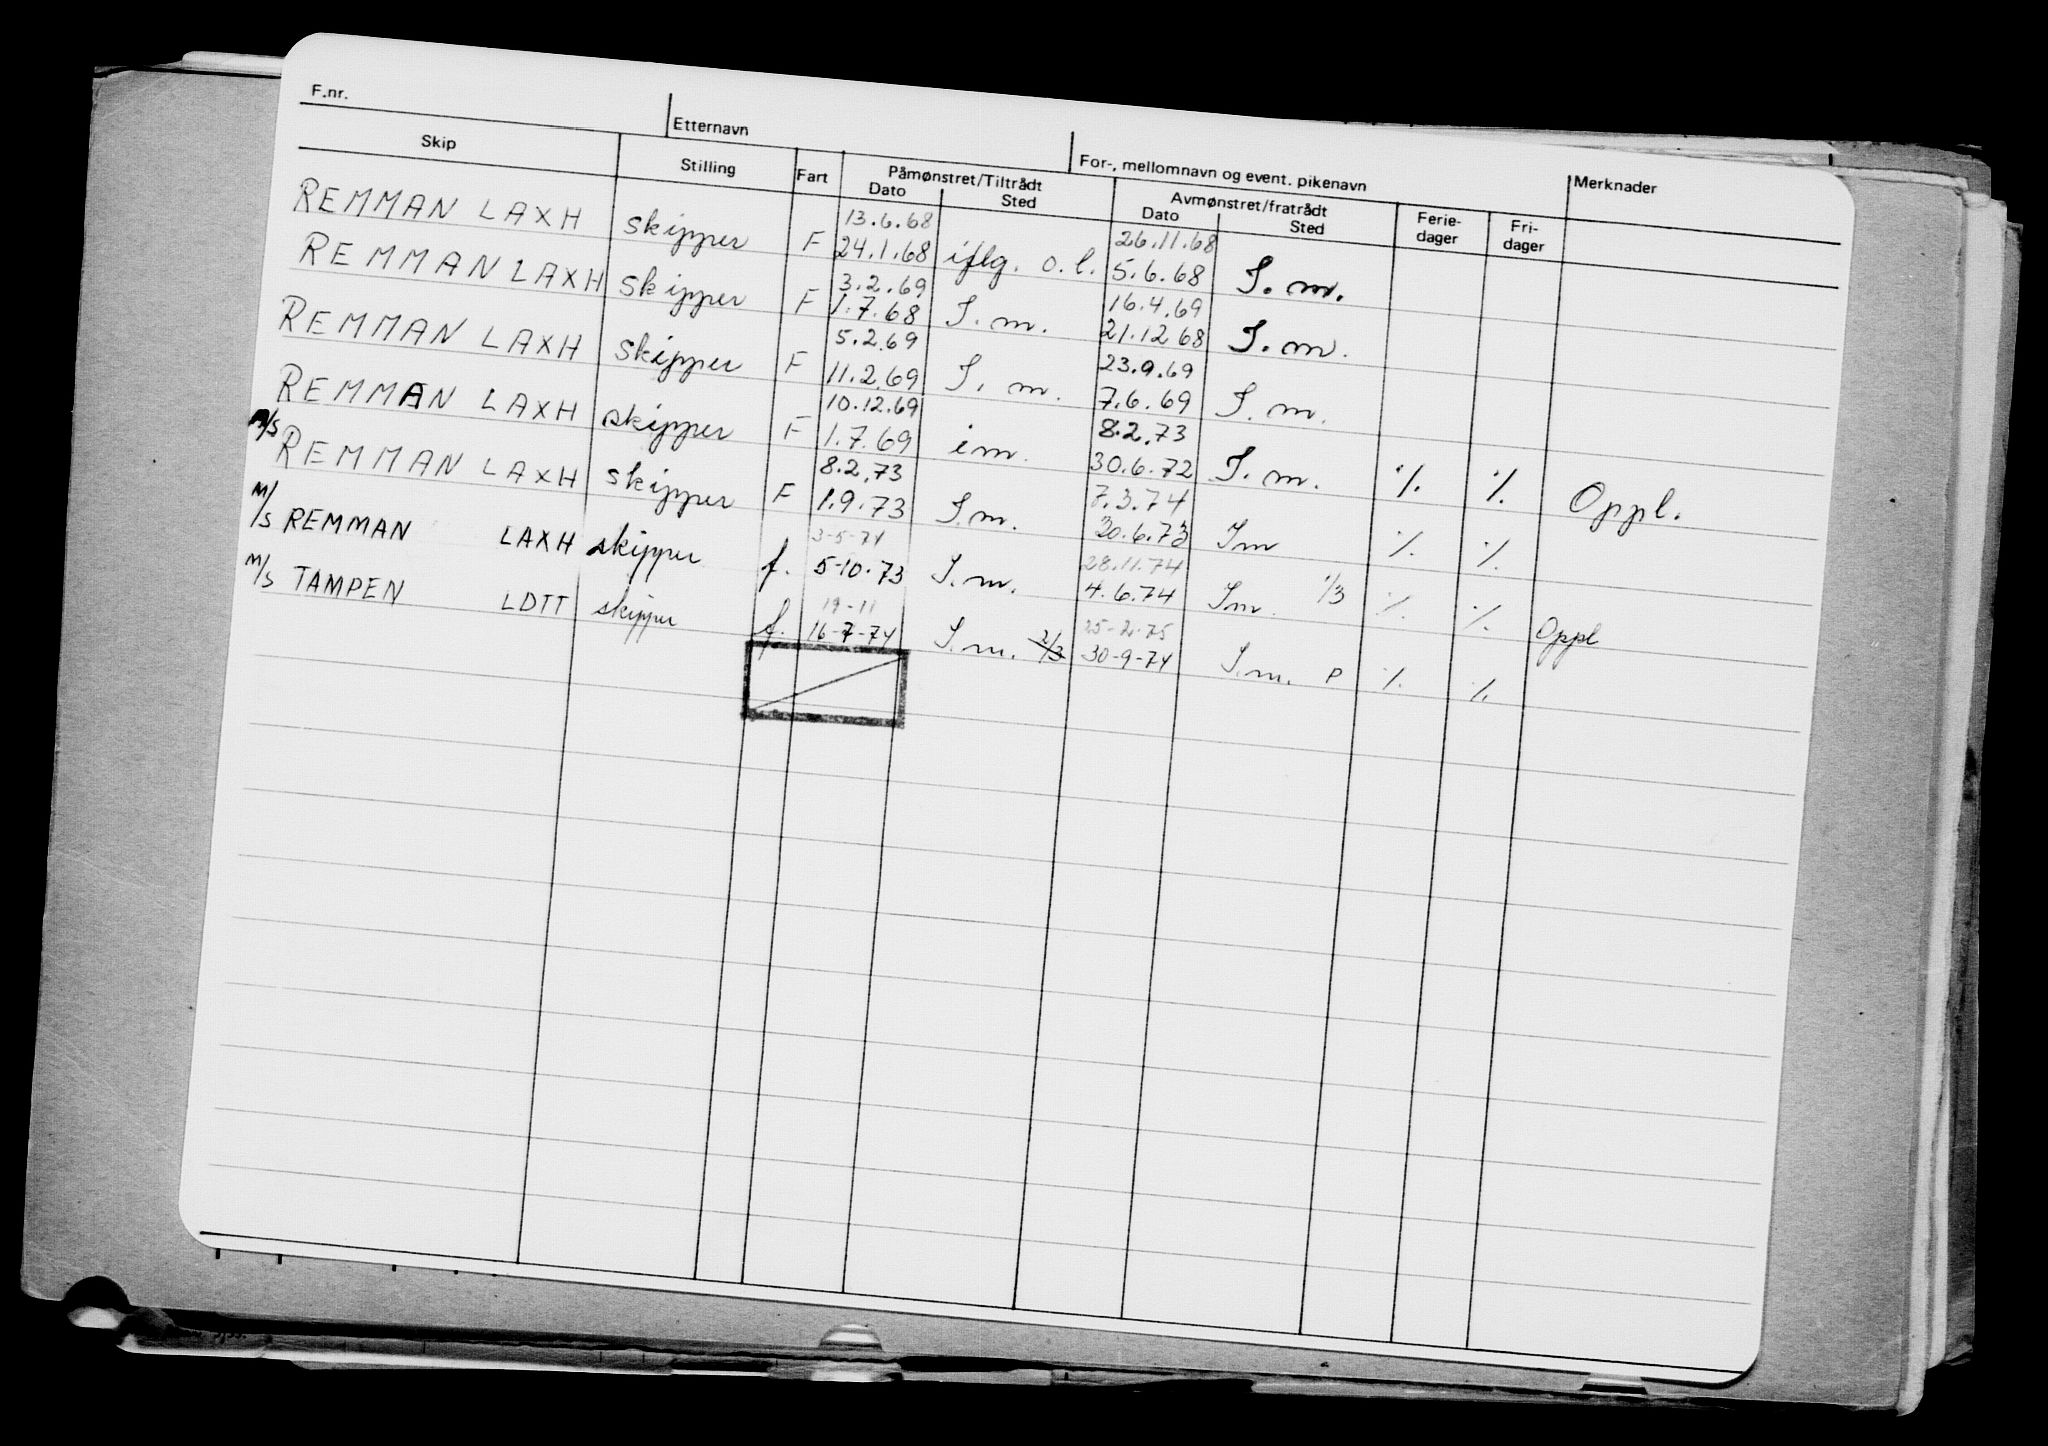 F.nr. Etternavn For-, mellomnavn og event. pikenavn
Skip Stilling Fart Påmønstret/Tiltrådt Dato Sted Avmønstret/fratrådt Dato Sted Ferie-dager Fri-dager Merknader
13.6.68 26.11.68
REMMAN LAXH skipper F 24.1.68 iflg. o.l. 5.6.68 I.m.
3.2.69 16.4.69
REMMAN LAXH skipper F 1.7.68 I.m. 21.12 68 I.m.
5.2.69 23.9.69
REMMAN LAXH skipper F 11.2.69 I.m. 7.6.69 I.m.
10.12.69 8.2.73
REMMAN LAXH skipper F 1.7.69 im. 30.6.72 I.m. ./. ./. Oppl.
8.2.73 7.3.74
M/S REMMAN LAXH skipper F 1.9.73 I.m. 30.6.73 Im ./. ./.
3-5-74 28.11.74
M/S REMMAN LAXH skipper f. 5-10.73 I.m. 4.6.74 Im. 1/3 ./. ./. Oppl
19-11 25-2-75
M/S TAMPEN LDTT skipper f. 16-7-74 I.m. 2/3 30-9-74 I.m. P ./. ./.